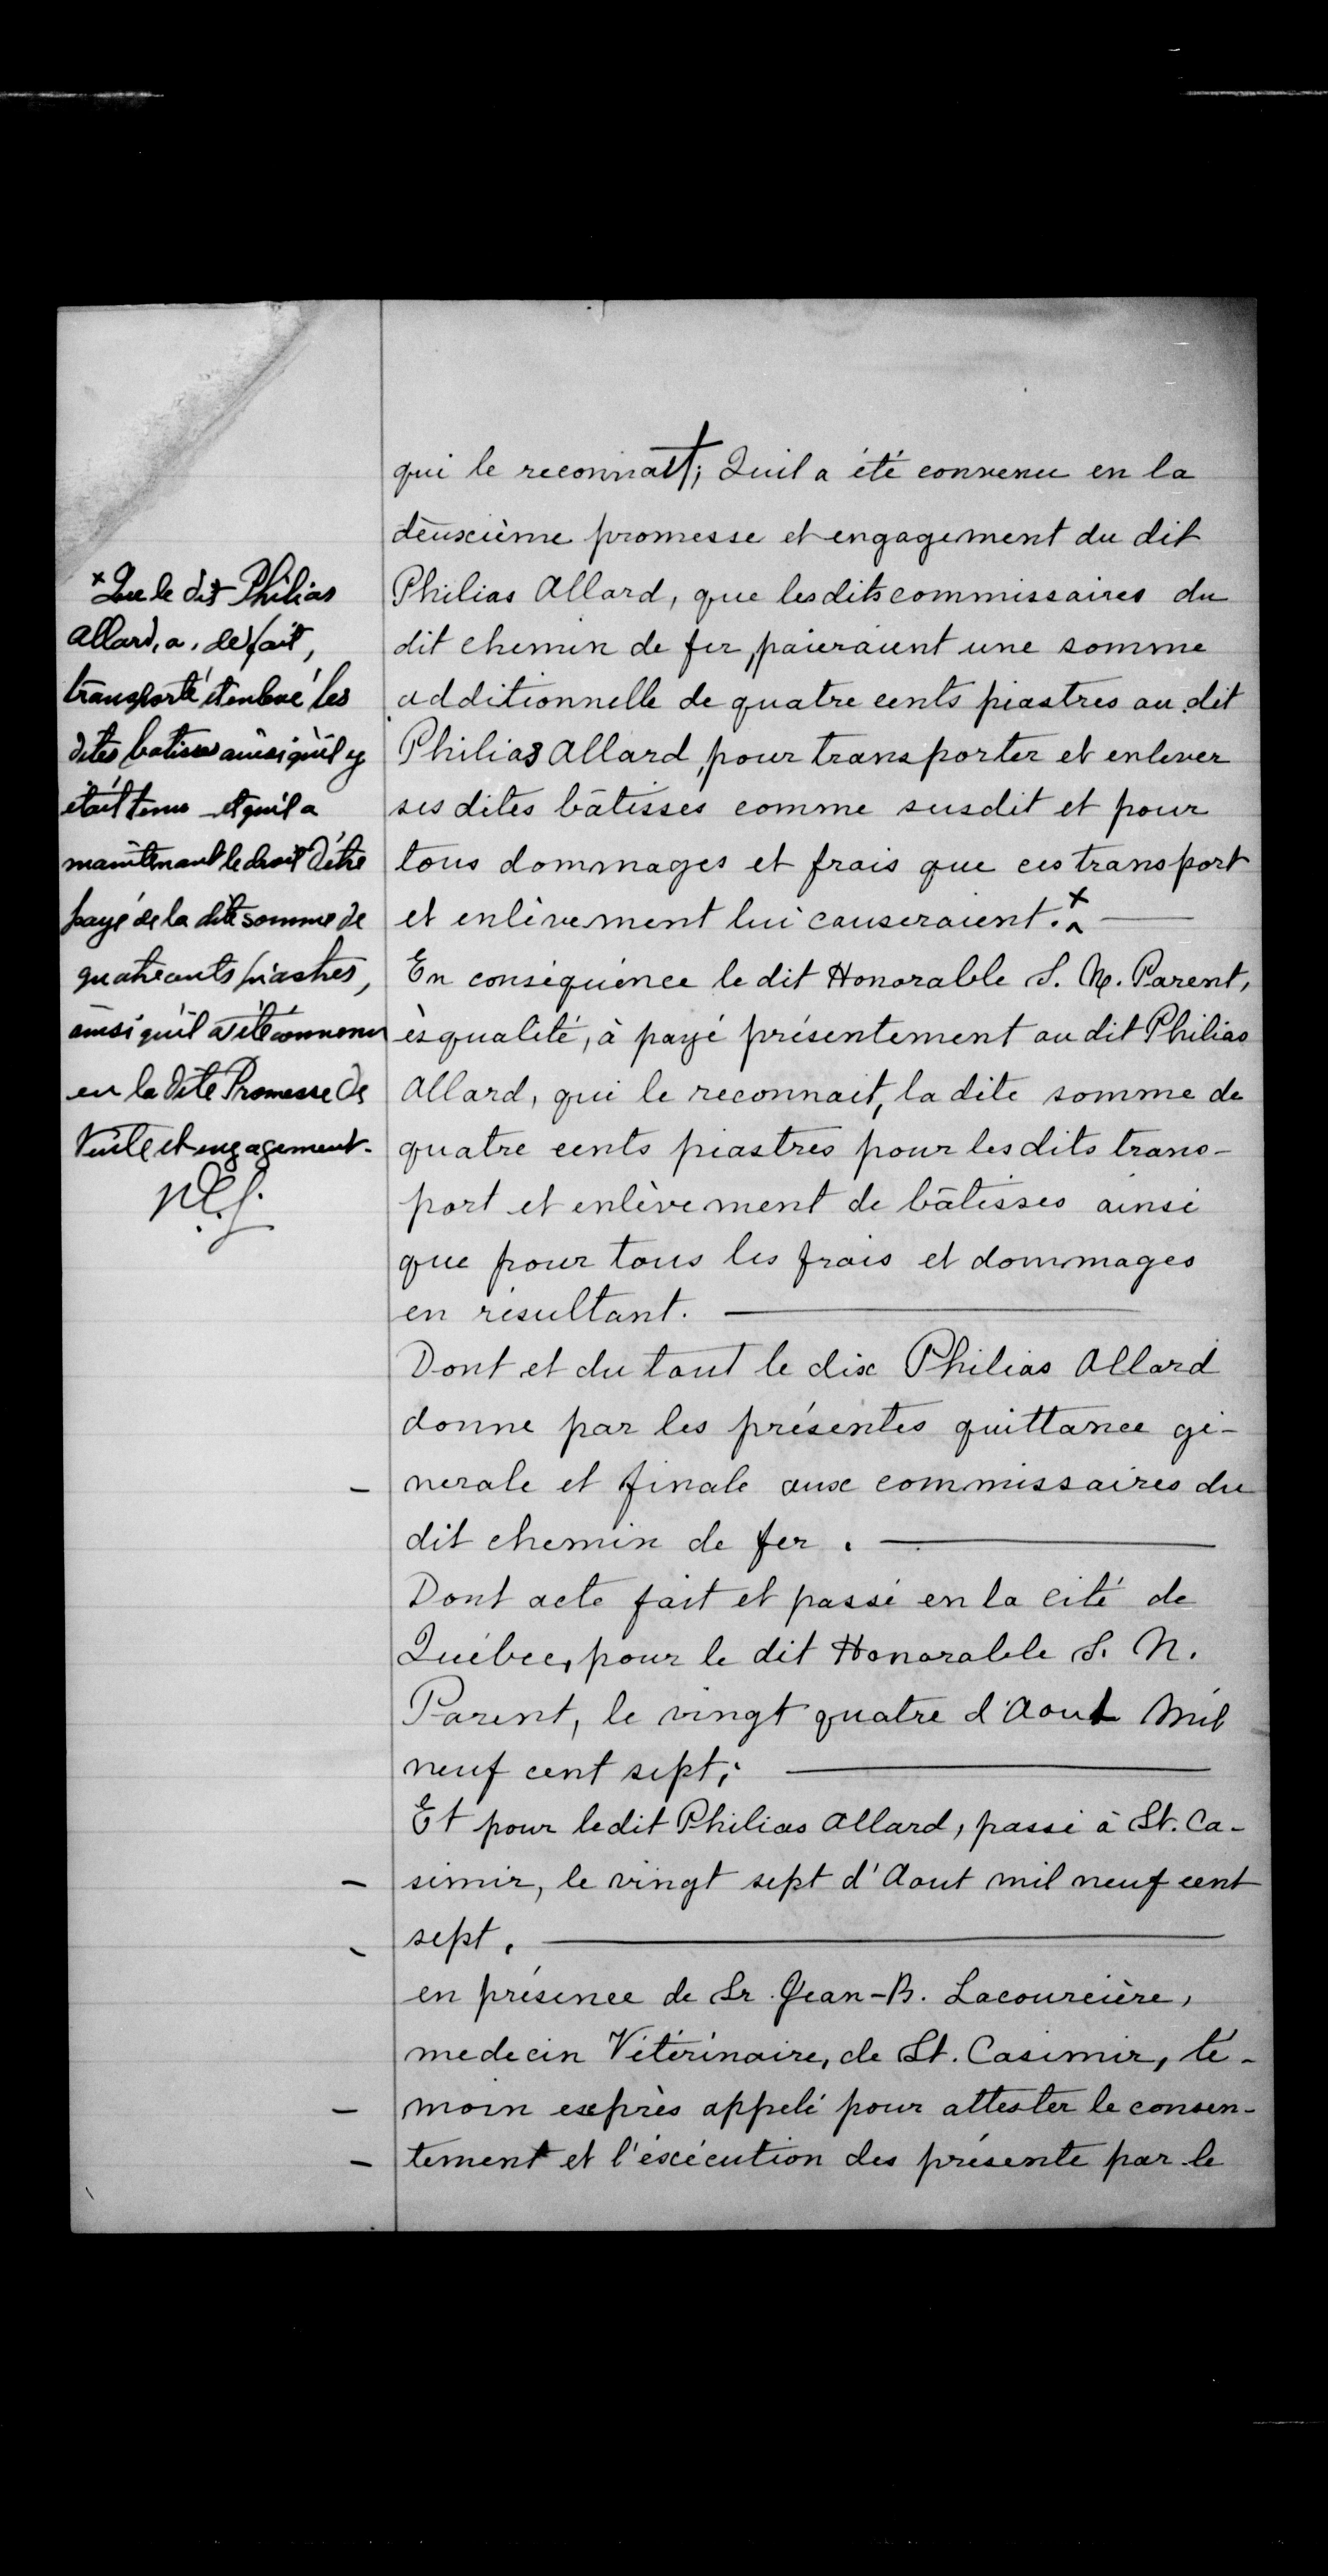 qui le reconnait; Quil a été convenu en la
deuxième promesse et engagement du dit
Philias Allard, que lesdits commissaires du
dit chemin de fer, paieraient une somme
additionnelle de quatre cents piastres au dit
Philias Allard, pour transporter et enlever
ses dites bâtisses comme susdit et pour
tous dommages et frais que ces transport
et enlèvement lui causeraient. x
En conséquence le dit Honorable S. N. Parent,
ès qualité, à payé présentement au dit Philias
Allard, qui le reconnait, la dite somme de
quatre cents piastres pour lesdits trans-
port et enlèvement de bâtisses ainsi
que pour tous les frais et dommages
en résultant.
Dont et du tout le dix Philias Allard
donne par les présentes quittance gé-
nerale et finale aux commissaires du
dit chemin de fer.
Dont acte fait et passé en la cité de
Québec, pour le dit Honorable S. N.
Parent, le vingt quatre d'Aout mil
neuf cent sept;
Et pour ledit Philias Allard, passé à St. Ca-
simir, le vingt sept d'Aout mil neuf cent
sept.
en présence de Sr. Jean-B. Lacourcière,
medecin Vétérinaire, de St. Casimir, té-
moin exprès appelé pour attester le consen-
tement et l'éxécution des présente par le
x Que le dit Philias
Allard, a, de fait,
transporté et enlevé les
dites batisses ainsi qu'il y
était tenu et qu'il a
maintenant le droit d'être
payé de la dite somme de
quatre cents piastres,
ainsi qu'il a été convenu
en la dite Promesse de
Vente et engagement.